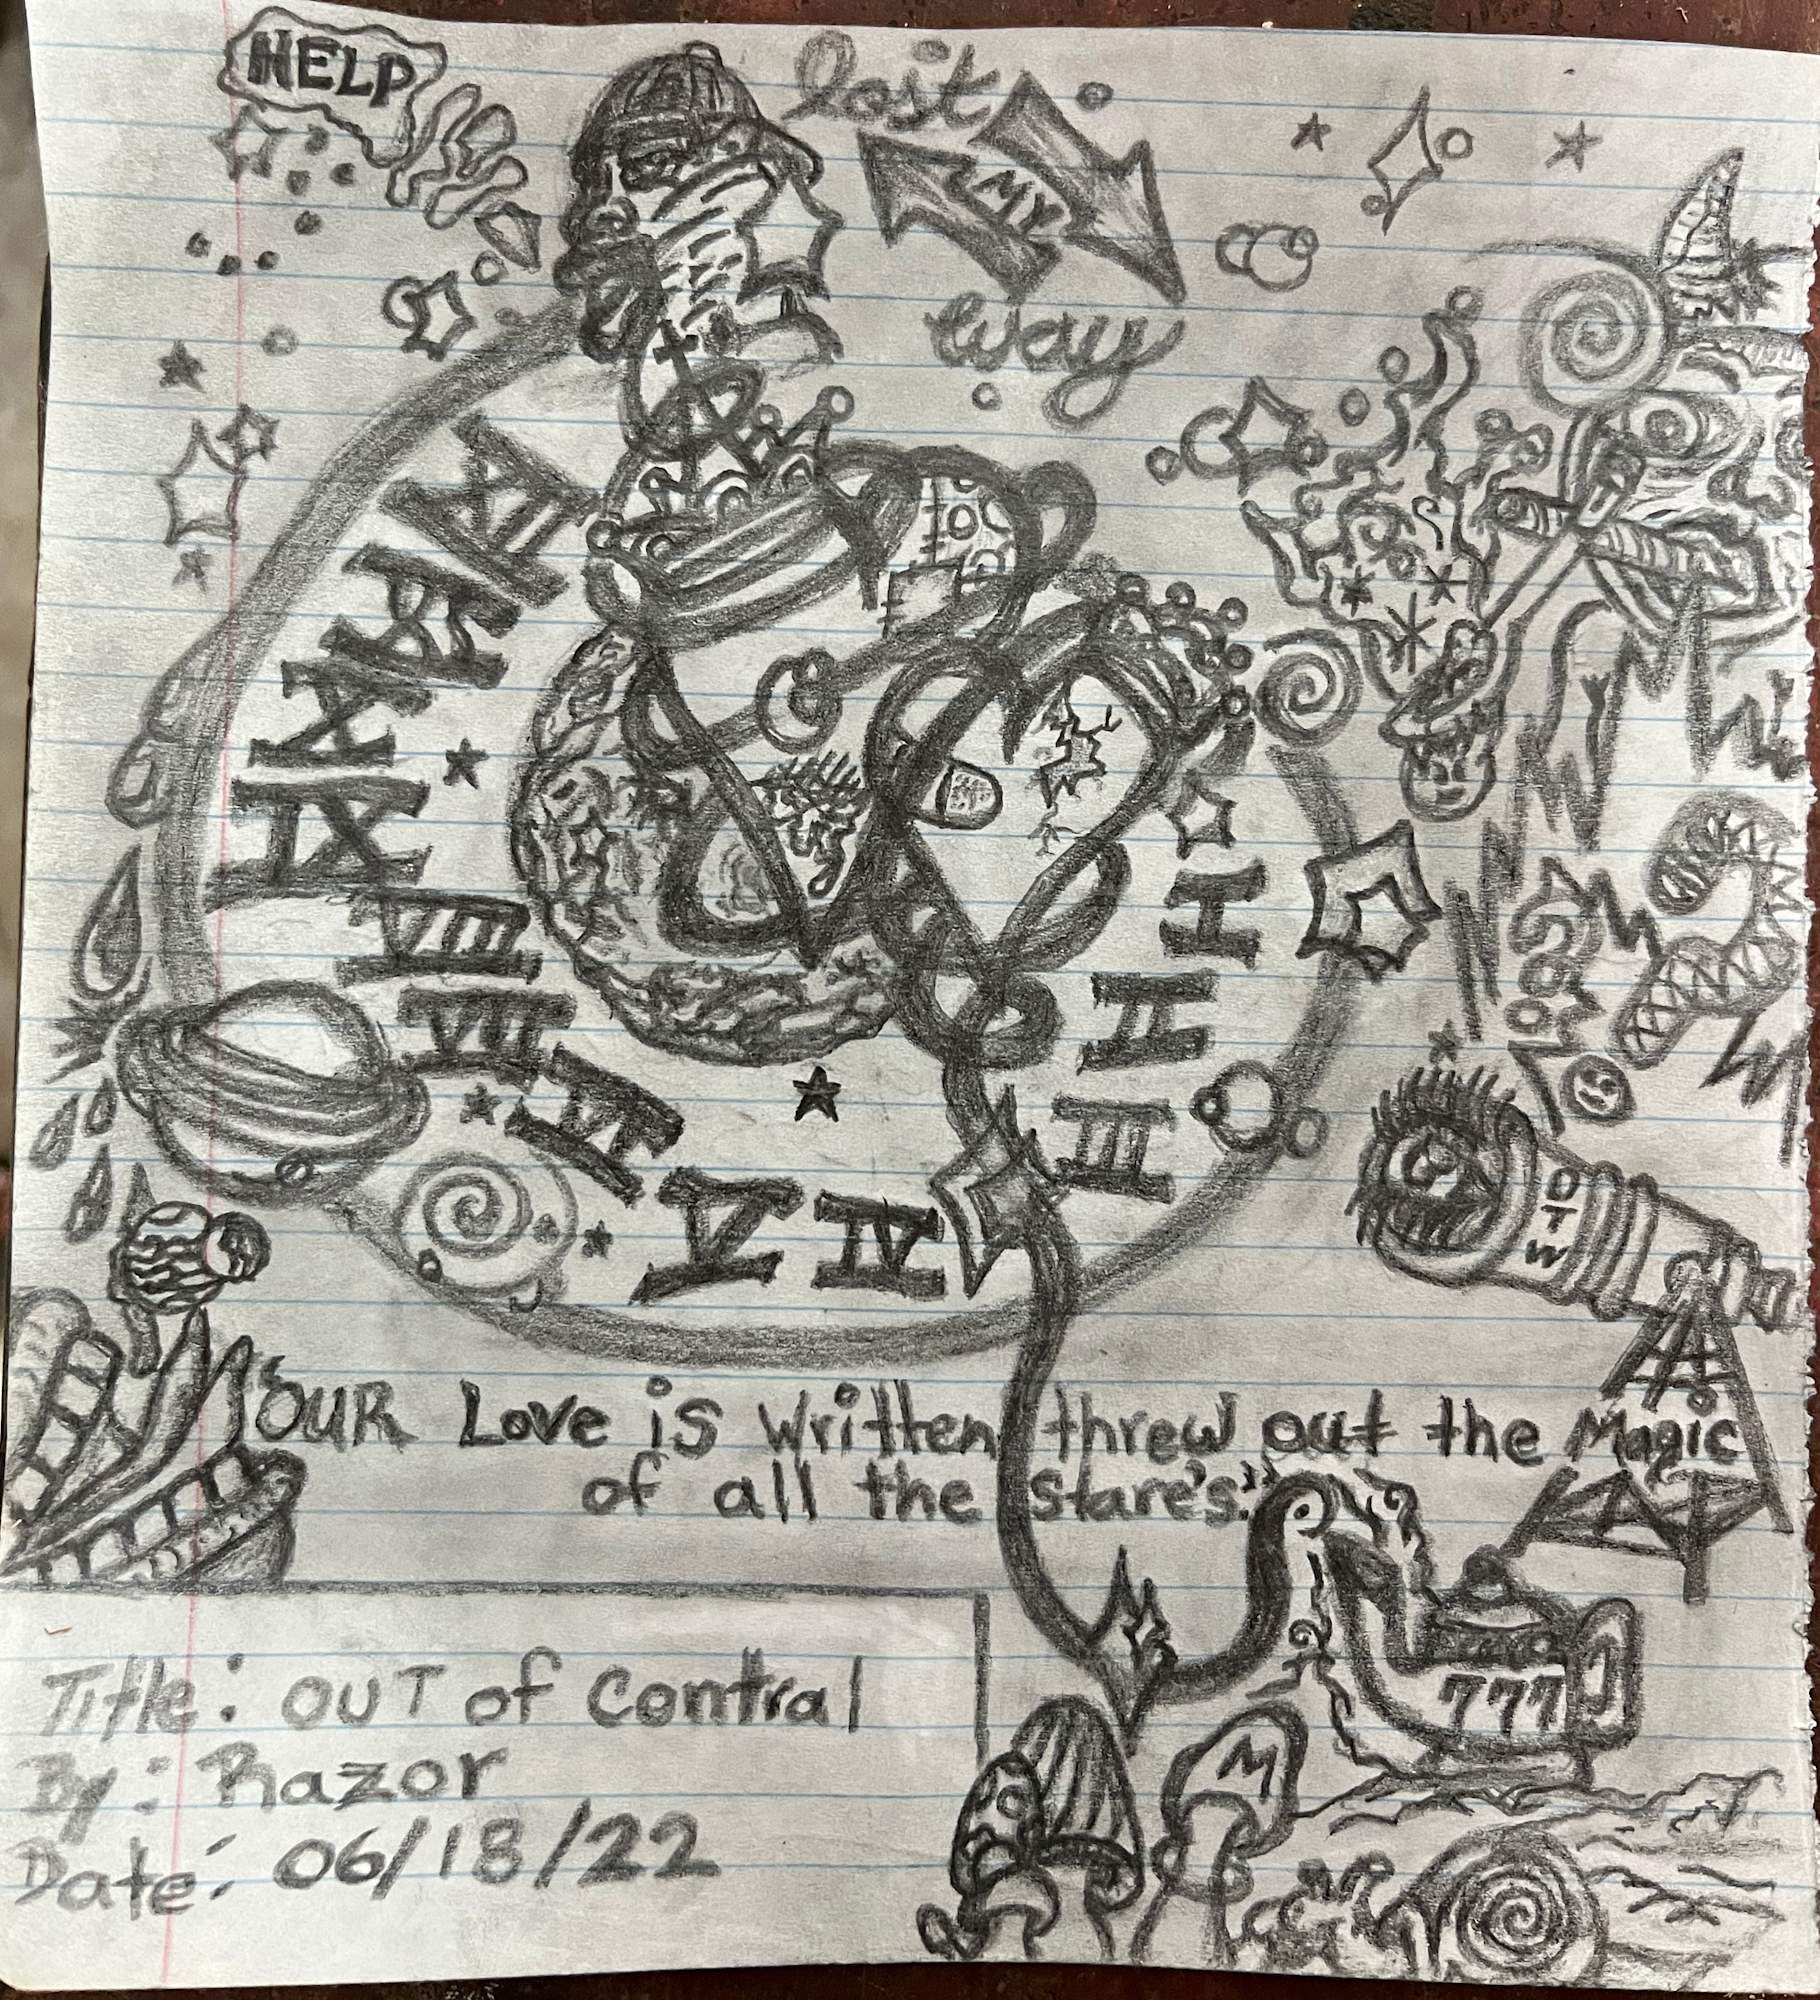 HELP
lost
MY
way
XII
XI
X
IX
VIII
VII
VI
V
IV
III
II
I
O
T
W
"OUR Love is written threw out the Magic
of all the stare's."
777
M
Title: OUT of Contral
By: Razor
Date: 06/18/22